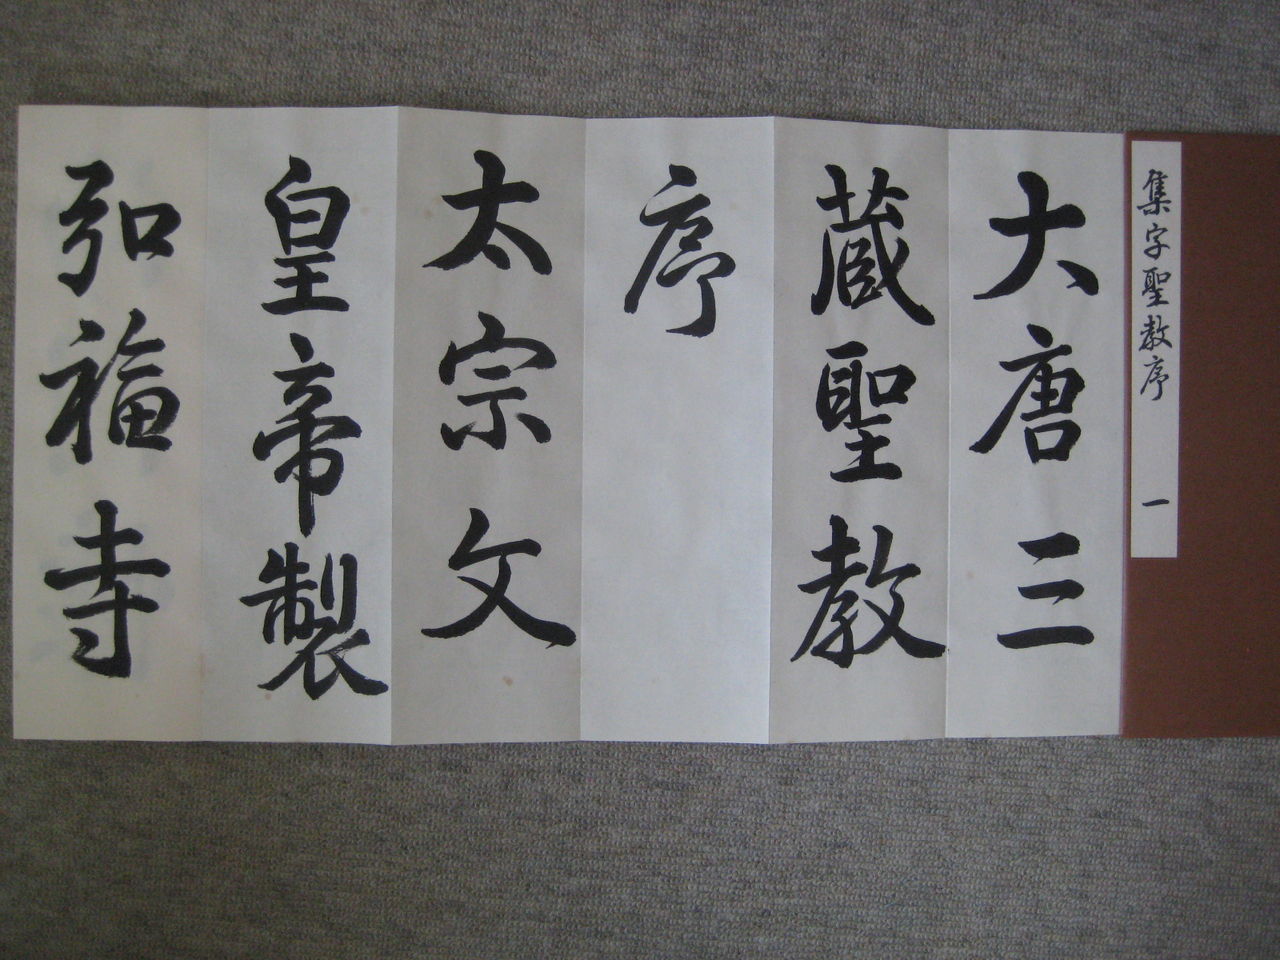 集字聖教序 一
大唐三
蔵聖教
序
太宗文
皇帝製
弘福寺